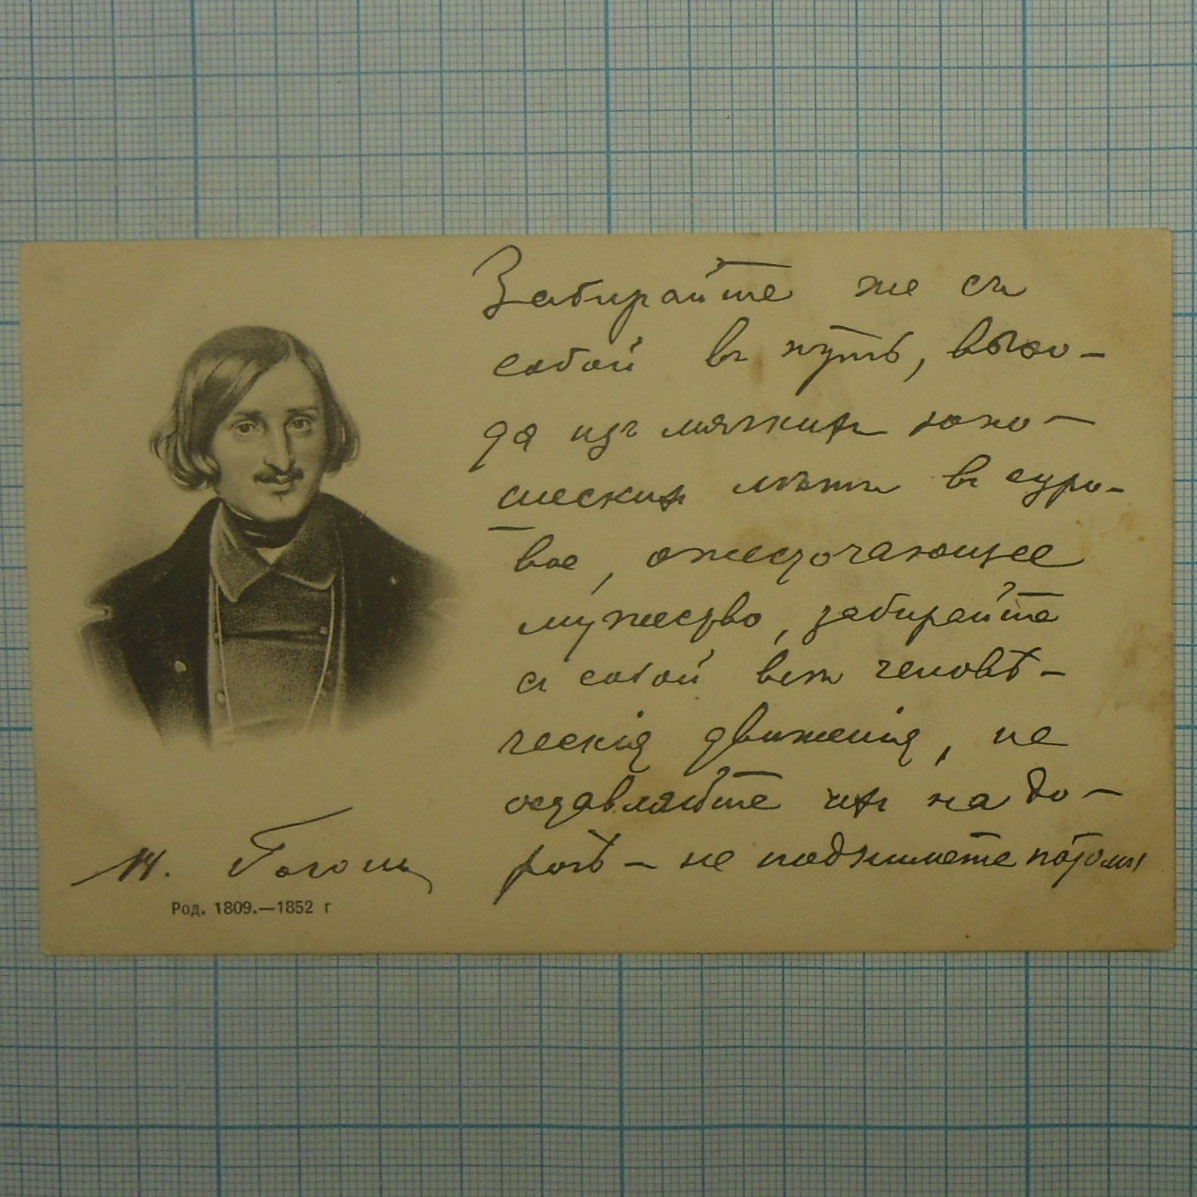 Забирайте же съ
собой въ путь, выхо-
дя изъ мягкихъ юно-
шескихъ лѣтъ въ суро-
вое, ожесточающее
мужество, забирайте
съ собой всѣ человѣ-
ческія движенія, не
оставляйте ихъ на до-
рогѣ — не подымете потомъ
Н. Гоголь
Род. 1809.—1852 г